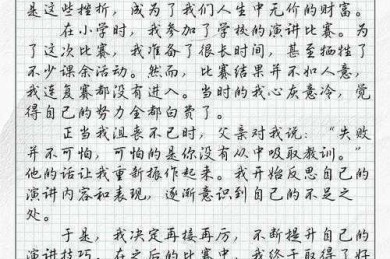 是这些挫折，成为了我们人生中无价的财富。
在小学时，我参加了学校的演讲比赛。为
了这次比赛，我准备了很长时间，甚至牺牲了
不少课余活动。然而，比赛结果并不如人意，
我连复赛都没有进入。当时的我心灰意冷，觉
得自己的努力全都白费了。
正当我沮丧不已时，父亲对我说：“失败
并不可怕，可怕的是你没有从中吸取教训。”
他的话让我重新振作起来。我开始反思自己的
演讲内容和表现，逐渐意识到自己的不足之
处。
于是，我决定再接再厉，不断提升自己的
演讲技巧。在之后的比赛中，我终于取得了好